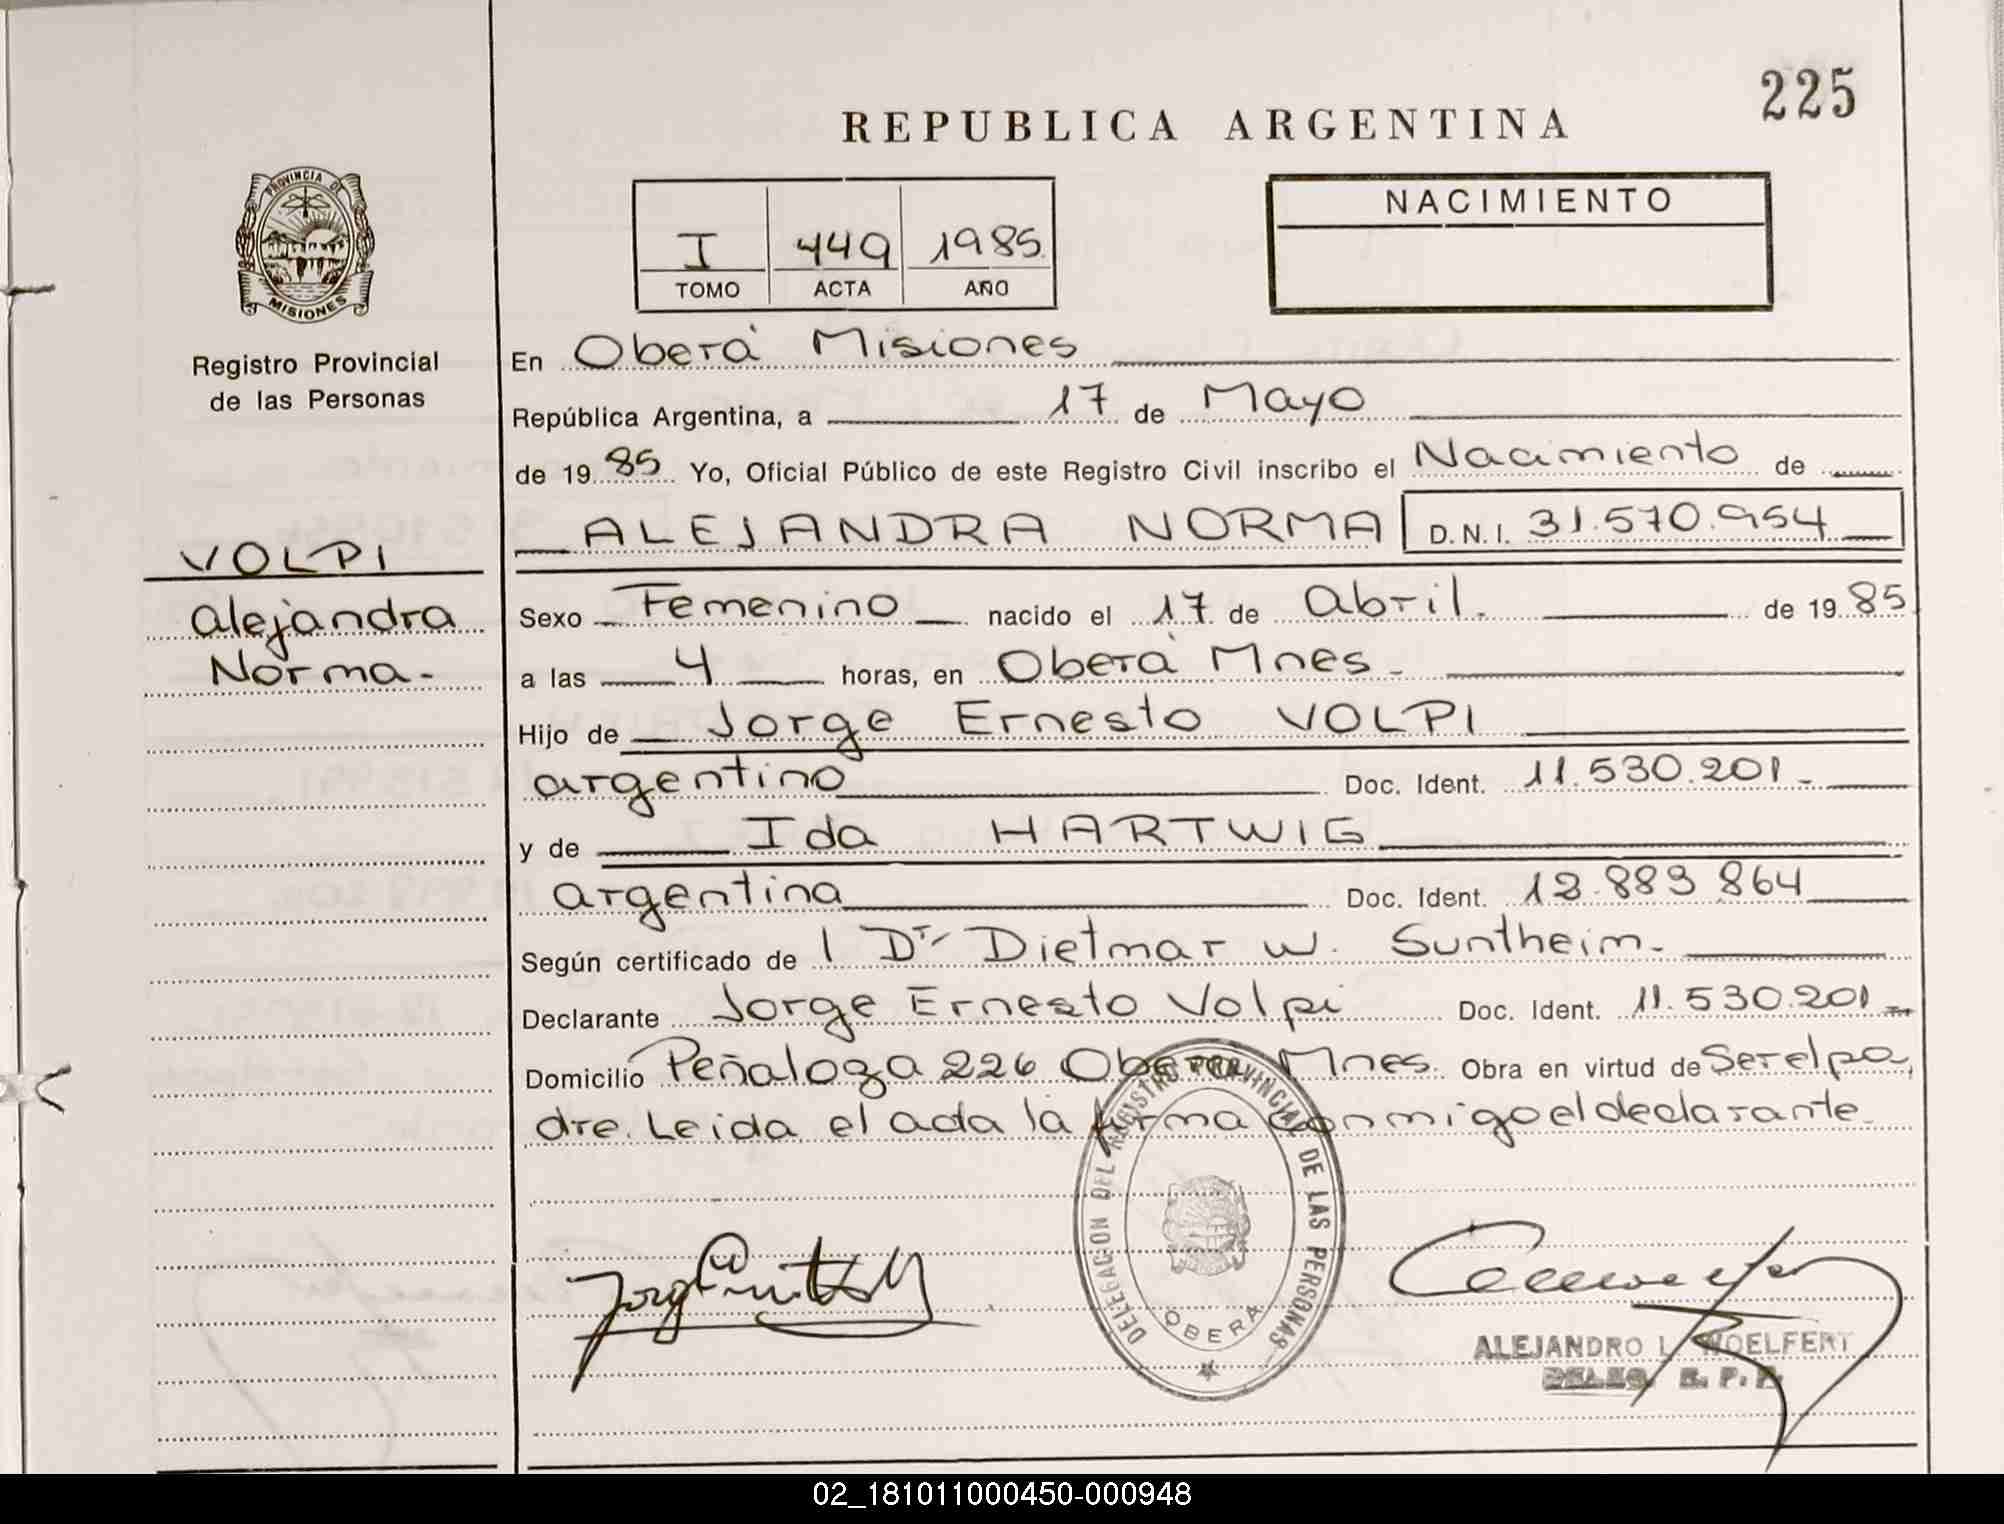 225
REPUBLICA ARGENTINA
PROVINCIA DE
MISIONES
Registro Provincial
de las Personas
I 449 1985
TOMO ACTA AÑO
NACIMIENTO
En Oberá Misiones
República Argentina, a 17 de Mayo
de 1985 Yo, Oficial Público de este Registro Civil inscribo el Nacimiento de
ALEJANDRA NORMA D.N.I. 31.570.954
VOLPI
Alejandra
Norma.-
Sexo Femenino nacido el 17 de Abril. de 1985
a las 4 horas, en Oberá Mnes.
Hijo de Jorge Ernesto VOLPI
argentino Doc. Ident. 11.530.201.-
y de Ida HARTWIG
argentina Doc. Ident. 12.883 864
Según certificado de 1 Dr Dietmar W. Suntheim.-
Declarante Jorge Ernesto Volpi Doc. Ident. 11.530.201
Domicilio Peñaloza 226 Oberá Mnes. Obra en virtud de Ser el pa
dre. Leida el acta la firma conmigo el declarante.
DELEGACION DEL REGISTRO PROVINCIAL DE LAS PERSONAS
OBERA
ALEJANDRO L. WOELFERT
DELEG. R. P. P.
02_181011000450-000948